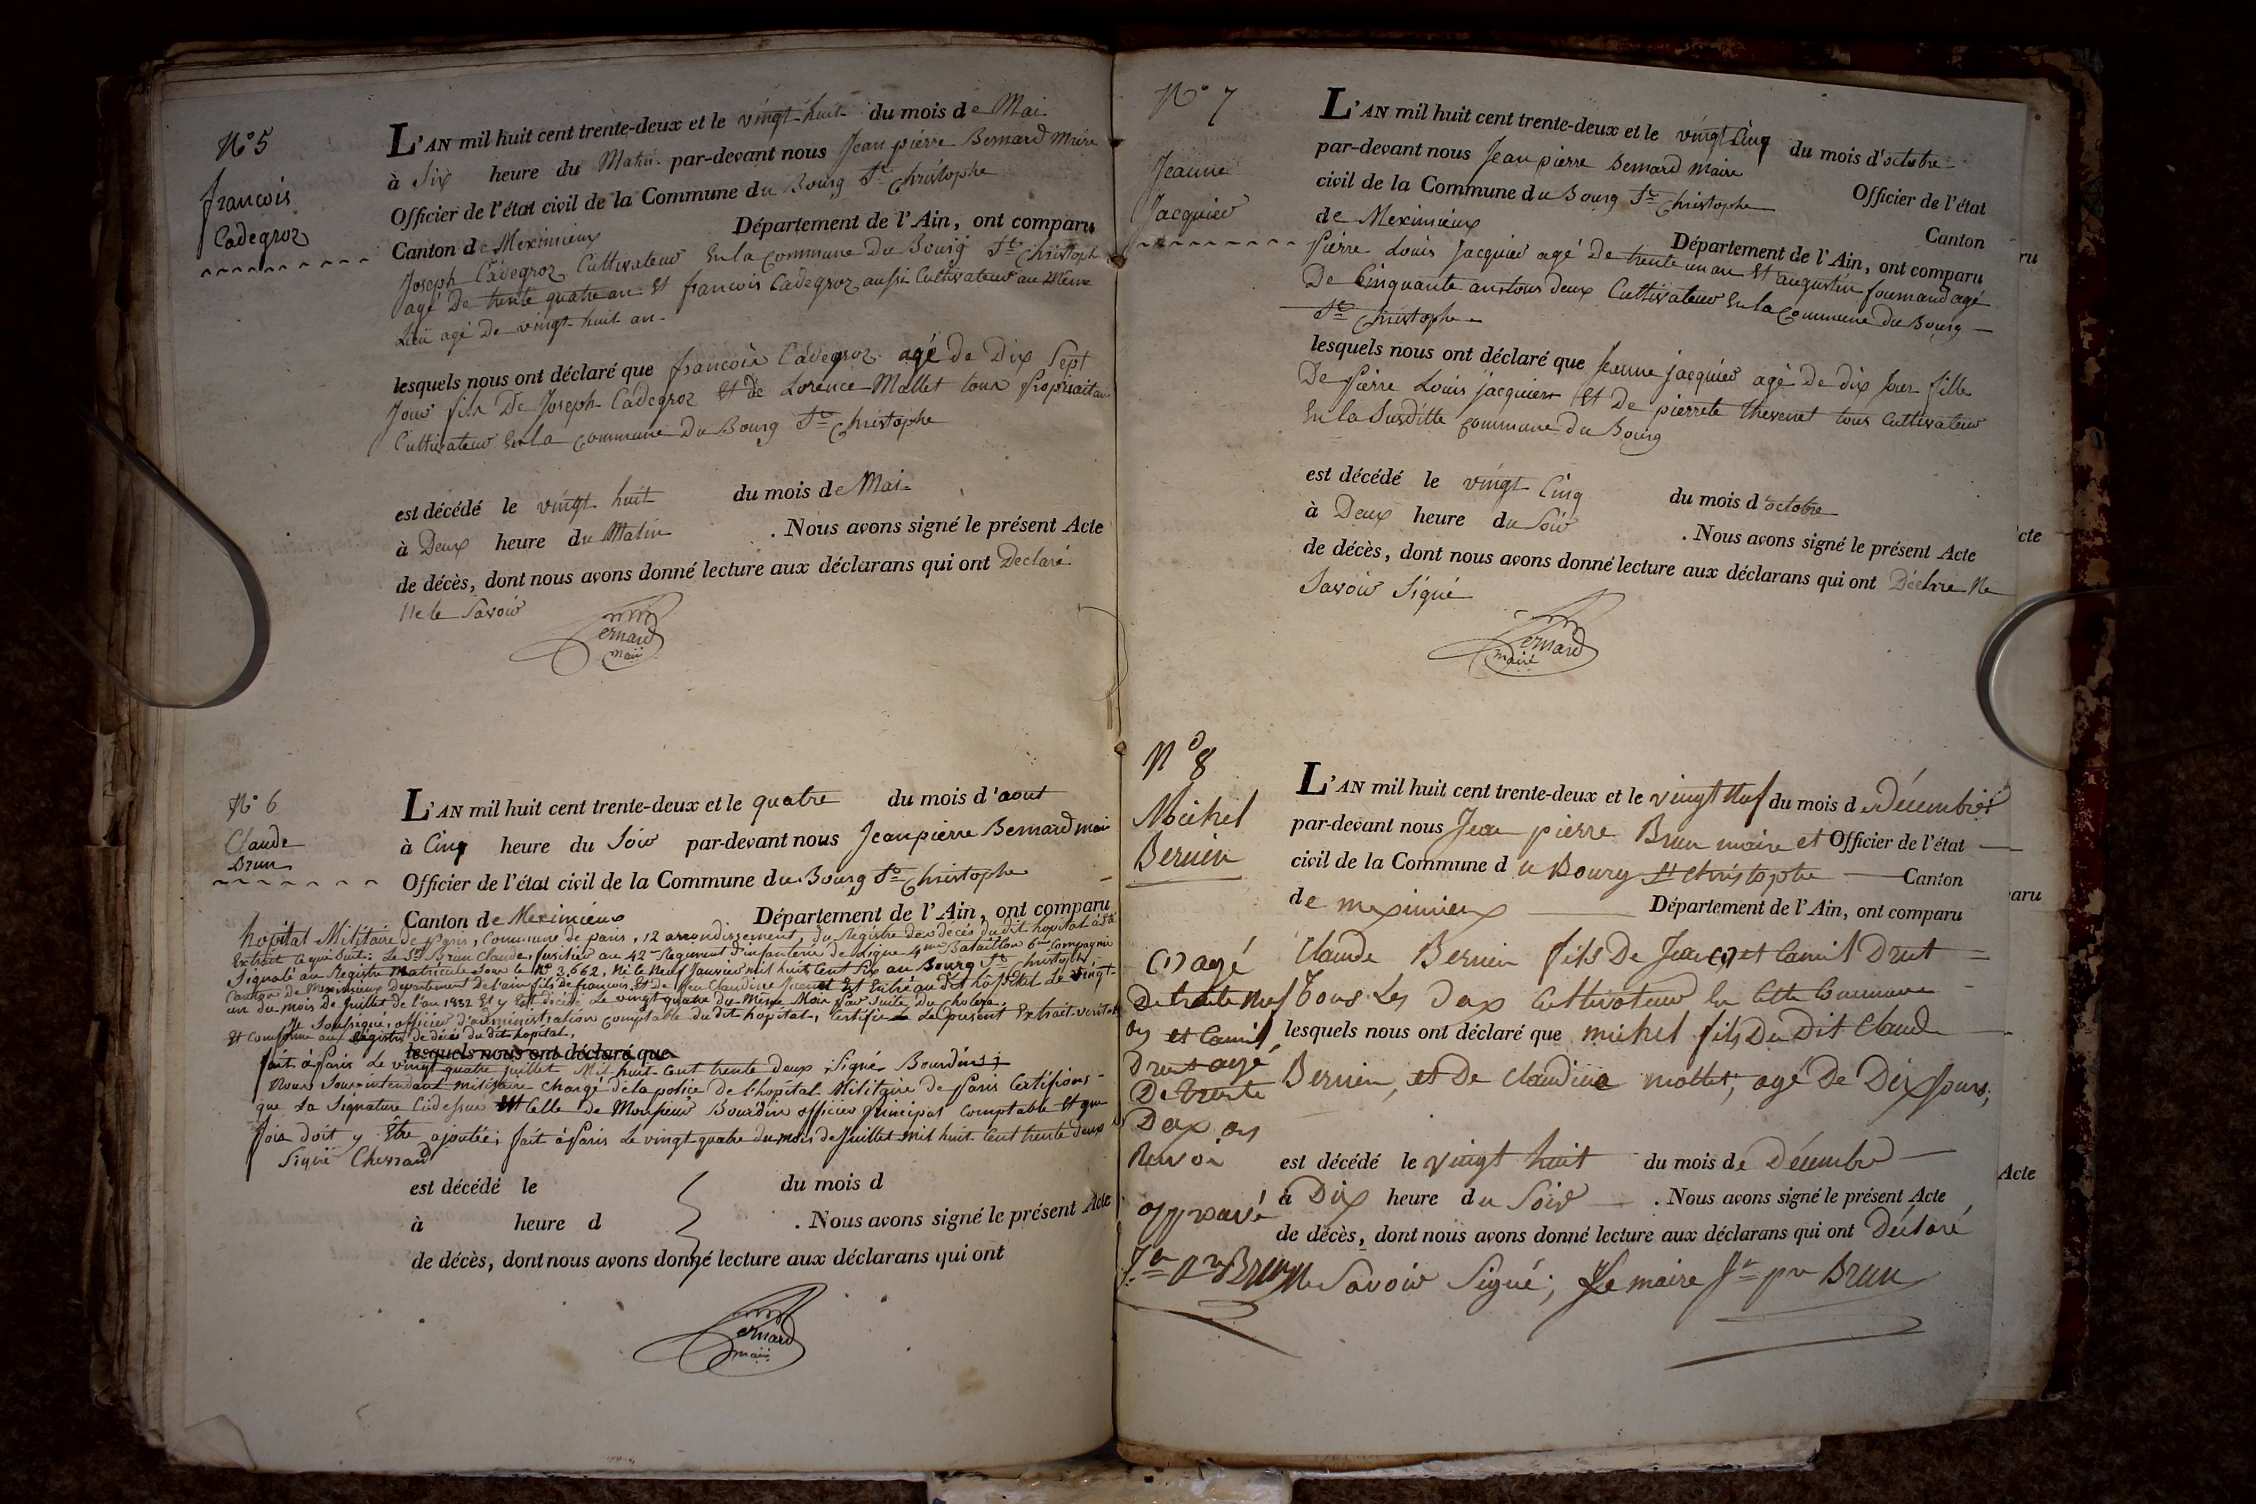 N° 5
francois
Cadegroz
L'AN mil huit cent trente-deux et le vingt huit du mois de Mai
à Six heure du Matin par-devant nous Jean pierre Bernard Maire
Officier de l'état civil de la Commune du Bourg St Christophe
Canton de Meximieux Département de l'Ain, ont comparu
Joseph Cadegroz Cultivateur En la Commune du Bourg St Christoph
agé De trente quatre an Et francois Cadegroz aussi Cultivateur au Meme
Lieu agé De vingt huit an
lesquels nous ont déclaré que francois Cadegroz agé de Dix Sept
Jour fils De Joseph Cadegroz Et de Lorence Mallet tous
Cultivateur En la Commune Du Bourg St Christophe
est décédé le vingt huit du mois de Mai
à Deux heure du Matin . Nous avons signé le présent Acte
de décès, dont nous avons donné lecture aux déclarans qui ont Declaré
Ne le Savoir
Bernard
maire
N° 6
Claude
Brun
L'AN mil huit cent trente-deux et le quatre du mois d'aout
à Cinq heure du Soir par-devant nous Jean pierre Bernard
Officier de l'état civil de la Commune du Bourg St Christophe
Canton de Meximieux Département de l'Ain, ont comparu
hopital Militaire de Paris, Commune de paris, 12 arrondissement, du Registre des decés du dit hopital à été
Extrait ce qui Suit: Le Sr Brun Claude, fusilier au 42me Regiment d'infanterie de Ligne 4me Bataillon 6me Compagnie
Signalé au Registre Matricule Sous le No 3,662, Né le Neuf Janvier mil huit Cent Six au Bourg St Christophe,
Canton de Meximieux Departement de l'ain fils de francois Et de feu Claudine Est Entré au dit hopital Le vingt
un du mois de Juillet de l'an 1832 Et y Est décédé Le vingt quatre du Même Mois par Suite du Cholera.
Je Soussigné, officier d'administration comptable du dit hopital, Certifie Le présent Extrait
Et Conforme aux Registre de décès du dit hopital.
lesquels nous ont déclaré que
fait à Paris Le vingt quatre juillet Mil huit Cent trente deux Signé Bourdin;
Nous Sous intendant militaire chargé de la police de l'hopital Militaire de Paris Certifions
que La Signature Cidessus Est Celle de Monsieur Bourdin officier principal Comptable Et que
foi doit y Etre ajoutée; fait à Paris Le vingt quatre du mois de Juillet mil huit Cent trente deux
Signé
est décédé le du mois d
à heure d . Nous avons signé le présent Acte
de décès, dont nous avons donné lecture aux déclarans qui ont
Bernard
maire
N° 7
Jeanne
Jacquier
L'AN mil huit cent trente-deux et le vingt Cinq du mois d'octobre
par-devant nous Jean pierre Bernard Maire Officier de l'état
civil de la Commune du Bourg St Christophe Canton
de Meximieux Département de l'Ain, ont comparu
Pierre Louis Jacquier agé De trente un an Et augustin agé
De Cinquante an tous deux Cultivateur En la Commune Du Bourg
St Christophe
lesquels nous ont déclaré que Jeanne jacquier agé De dix Jour fille
De Pierre Louis jacquier Et De pierrete thevenet tous Cultivateur
En la Susditte Commune du Bourg
est décédé le vingt Cinq du mois d'octobre
à Deux heure du Soir . Nous avons signé le présent Acte
de décès, dont nous avons donné lecture aux déclarans qui ont Déclare Ne
Savoir Signé
Bernard
maire
N° 8
Michel
Bernin
L'AN mil huit cent trente-deux et le vingt Neuf du mois de Décembre
par-devant nous Jean pierre Brun maire et Officier de l'état
civil de la Commune du Bourg St Christophe Canton
de meximieux Département de l'Ain, ont comparu
Claude Bernin fils De Jean (1) et Camil Drut
Tous Les Dex Cultivateur En Cette Commune
lesquels nous ont déclaré que michel fils Du Dit Claude
Bernin, et De Claudine mollet, agé De Dix Jours,
est décédé le vingt huit du mois de Décembre
à Dix heure du Soir . Nous avons signé le présent Acte
de décès, dont nous avons donné lecture aux déclarans qui ont Déclaré
Ne Savoir Signé; Le maire Jn pre Brun
(1) agé
De trente Neuf
an et Camil
Drut agé
De trente
Dex an
Renvoi
approuvé
Jn pre Brun
ru
cte
paru
Acte